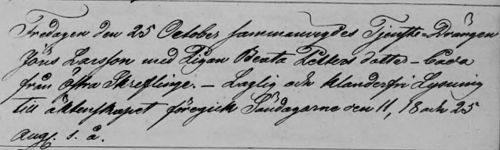 Fredagen den 25 October sammanvigdes Tjenste-Drängen
Jöns Larsson med Pigan Beata Petters dotter - båda
från Östra Skreflinge. - Laglig och klanderfri Lysning
till äktenskapet föregick Söndagarne den 11, 18 och 25
Aug. s. å.